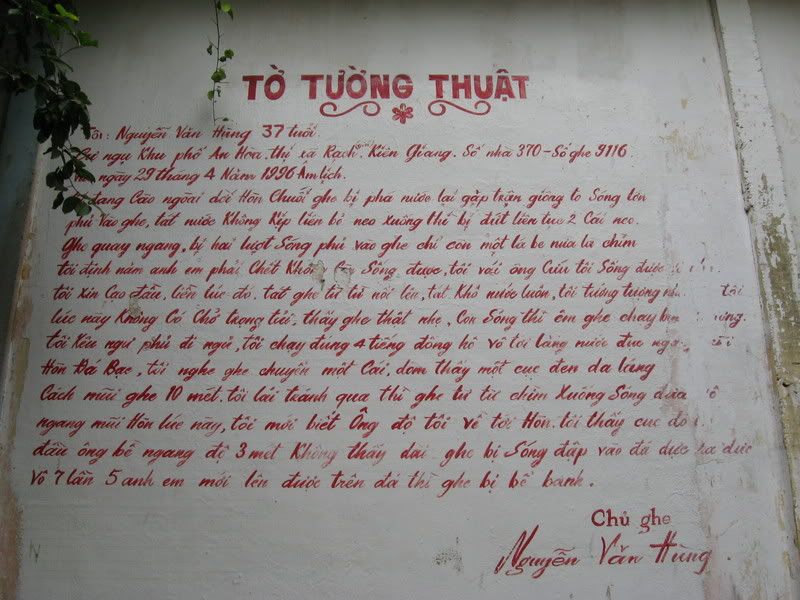 TỜ TƯỜNG THUẬT
Tôi: Nguyễn Văn Hùng 37 tuổi.
ngụ Khu phố An Hòa. thị xã Rạch. Kiên Giang. Số nhà 370-Số ghe 9116
ngày 29 tháng 4 Năm 1996 Âm lịch.
đang Cào ngoài dối Hòn Chuối ghe bị phá nước lại gặp trận giông to Sóng lớn
phủ vào ghe, tát nước Không Kịp liền bỏ neo xuống thì bị đứt liên tục 2 Cái neo.
Ghe quay ngang, bị hai lượt Sóng phủ vào ghe chỉ còn một lá be nữa là chìm
tôi định năm anh em phải Chết Không Sống được, tôi vái ông Cứu tôi Sống được
tôi xin Cạo đầu, liền lúc đó. tất ghe từ từ nổi lên, tát Khô nước luôn, tôi tưởng tượng tôi
lúc này Không Có Chở trọng tải, thấy ghe thật nhẹ, Con Sóng thì êm ghe chạy
tôi Kêu ngư phủ đi ngủ, tôi chạy đúng 4 tiếng đồng hồ vô tới làng nước đục
Hòn Đá Bạc, tôi nghe ghe chuyển một Cái, dòm thấy một cục đen da láng
Cách mũi ghe 10 mét. tôi lái tránh qua thì ghe từ từ chìm Xuống Sóng đưa vô
ngang mũi Hòn lúc này, tôi mới biết Ông độ tôi về tới Hòn. tôi thấy cục đó
đầu ông bề ngang độ 3 mét Không thấy dài ghe bị Sóng đập vào đá dực ra dực
vô 7 lần 5 anh em mới lên được trên đá thì ghe bị bể banh.
Chủ ghe
Nguyễn Văn Hùng.